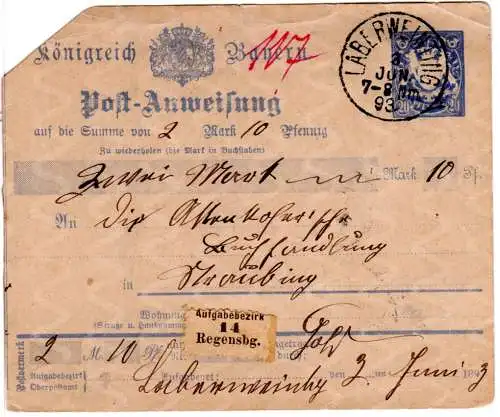 Königreich Bayern
117
LABERWEINTING
3
JUN.
7-8 Nm.
93
20
Post-Anweisung
auf die Summe von 2 Mark 10 Pfennig
Zu wiederholen (die Mark in Buchstaben)
Zwei Mark Mark 10 Pf.
An die Attenkofer'sche
Buchhandlung
in Straubing
Wohnung
(Straße u. Hausnummer)
Aufgabebezirk
14
Regensbg.
Postvermerk
2 M. 10 Pf.
Aufgabebezirk
Oberpostamt
Aufgabeort: Laberweinting den 3 Juni 1893